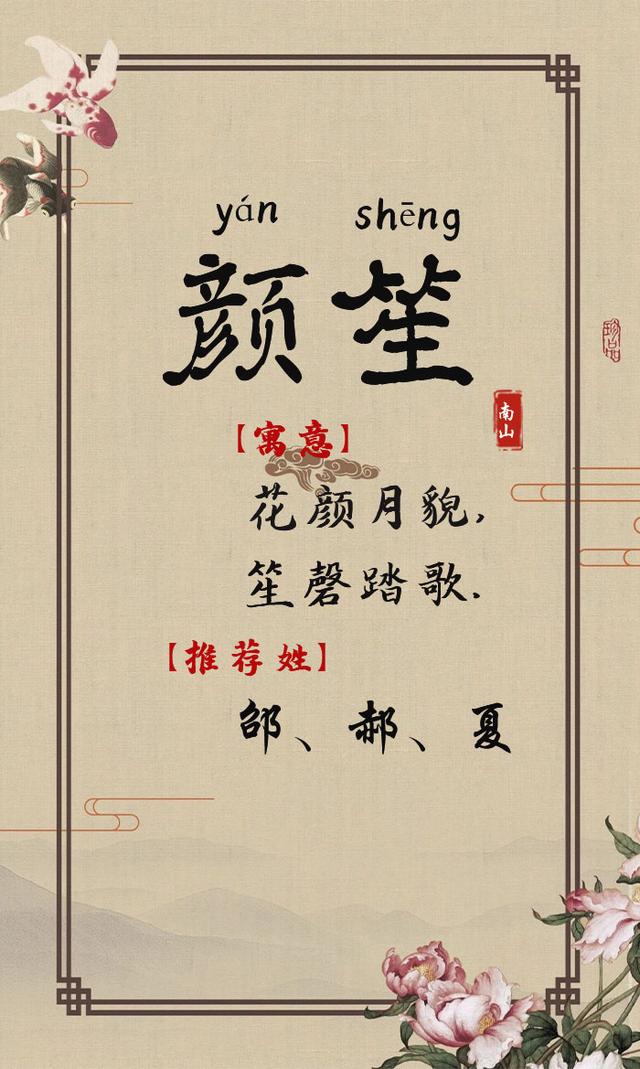 yán shēng
颜笙
南山
【寓意】
花颜月貌，
笙磬踏歌.
【推荐姓】
邰、郝、夏
珍品